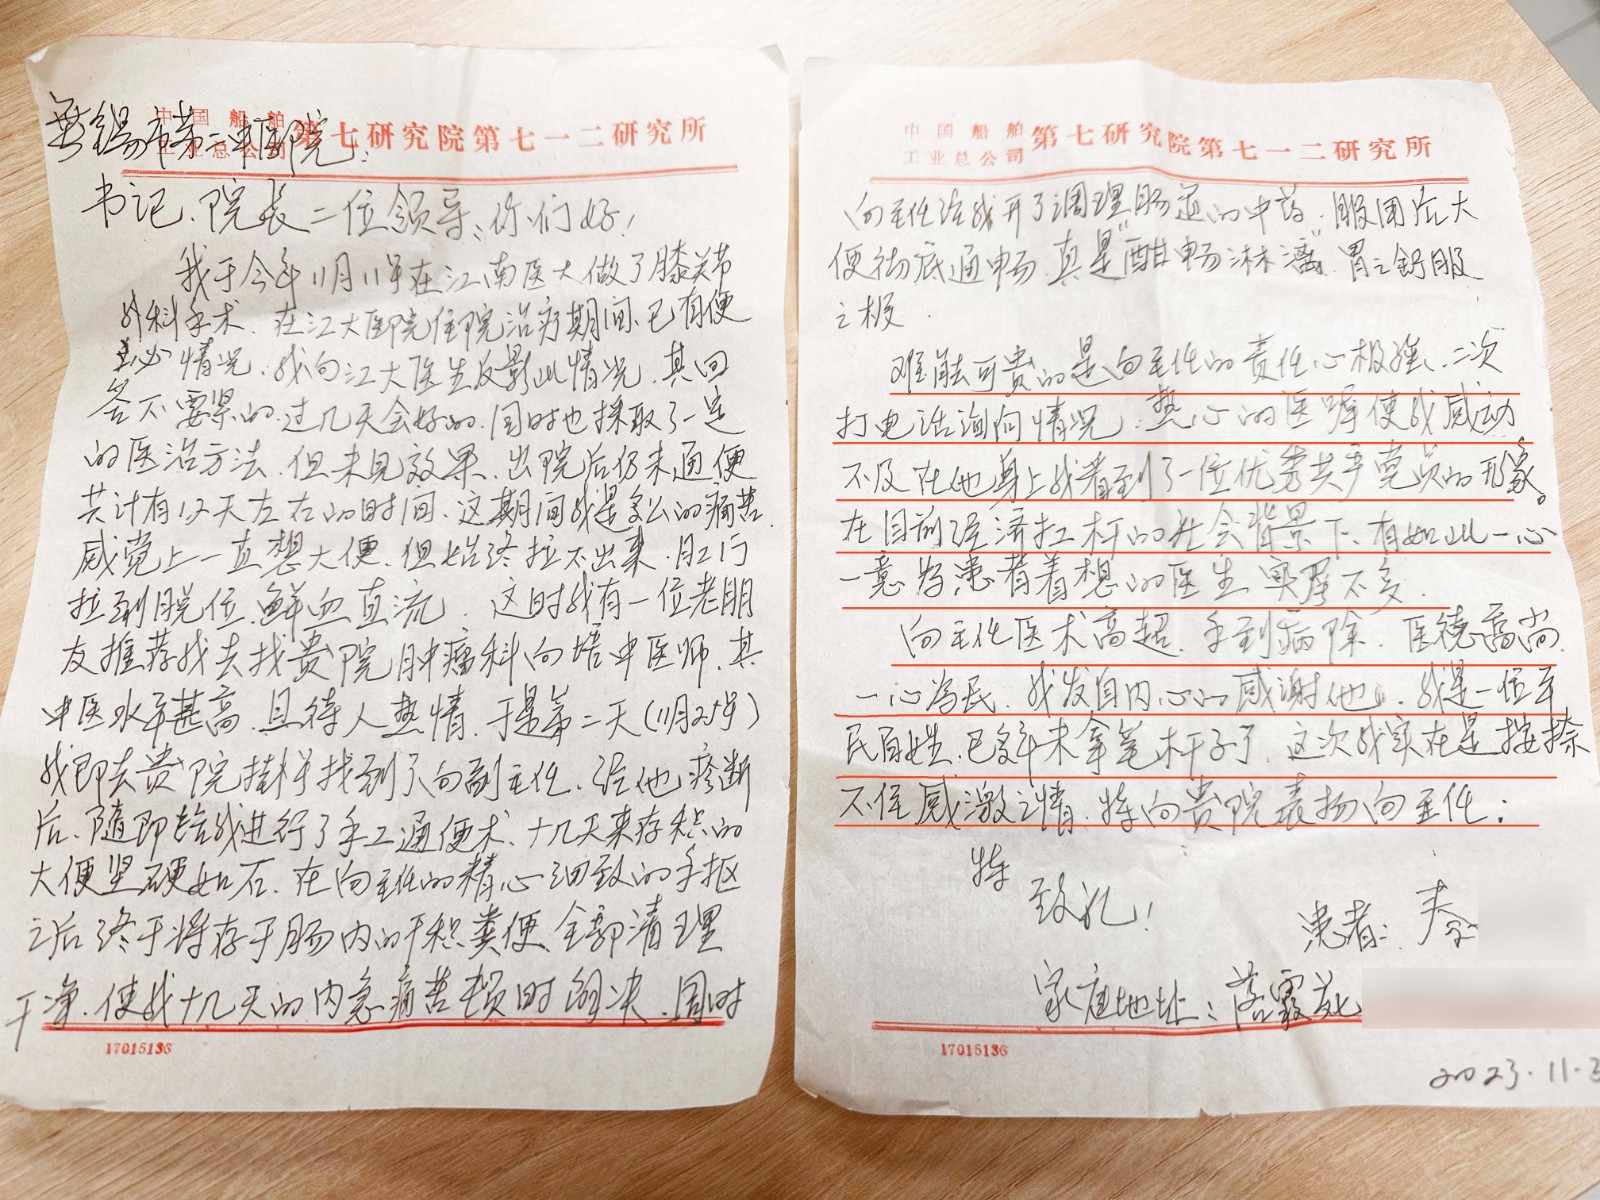 中国船舶工业总公司第七研究院第七一二研究所
无锡市第二中医院:
书记、院长二位领导:你们好!
我于今年11月11号在江南医大做了膝关节
外科手术、在江大医院住院治疗期间、已有便
情况、我向江大医生反影此情况、其回
答不要紧的、过几天会好的、同时也採取了一定
的医治方法、但未见效果、出院后仍未通便
共计有12天左右的时间、这期间我是多么的痛苦、
感觉上一直想大便、但始终拉不出来、肛门
拉到脱位、鲜血直流、这时我有一位老朋
友推荐我去找贵院肿瘤科向培中医师、其
中医水平甚高、且待人热情、于是第二天(11月25号)
我即去贵院挂号找到了向副主任、经他疹断
后、随即给我进行了手工通便术、十几天来存积的
大便坚硬如石、在向主任的精心细致的手抠
之后终于将存于肠内的干积粪便、全部清理
干净、使我十几天的内急痛苦顿时解决、同时
17015136
中国船舶工业总公司第七研究院第七一二研究所
向主任给我开了调理肠道的中药、服用后大
便彻底通畅、真是"酣畅淋漓"、胃之舒服
之极、
难能可贵的是向主任的责任心极强、二次
打电话询问情况、热心的医嘱使我感动
不及在他身上我看到了一位优秀共产党员的形象。
在目前经济扛杆的社会背景下、有如此一心
一意为患者着想的医生、实属不多、
向主任医术高超、手到病除、医德高尚、
一心为民、我发自内心的感谢他、我是一位平
民百姓、已多年未拿笔杆子了、这次我实在是按捺
不住感激之情、特向贵院表扬向主任:
特
致礼!
患者: 秦
家庭地址:落霞苑
17015136
2023.11.3